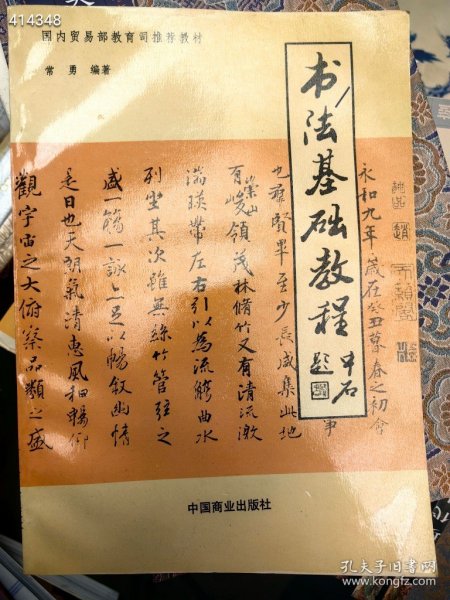 414348
国内贸易部教育司推荐教材
常勇 编著
书法基础教程
中石
题
永和九年歲在癸丑暮春之初會
事
也群賢畢至少長咸集此地
有崇山
峻領茂林脩竹又有清流激
湍暎帶左右引以為流觴曲水
列坐其次雖無絲竹管弦之
盛一觴一詠亦足以暢叙幽情
是日也天朗氣清惠風和暢仰
觀宇宙之大俯察品類之盛
中国商业出版社
孔夫子旧书网